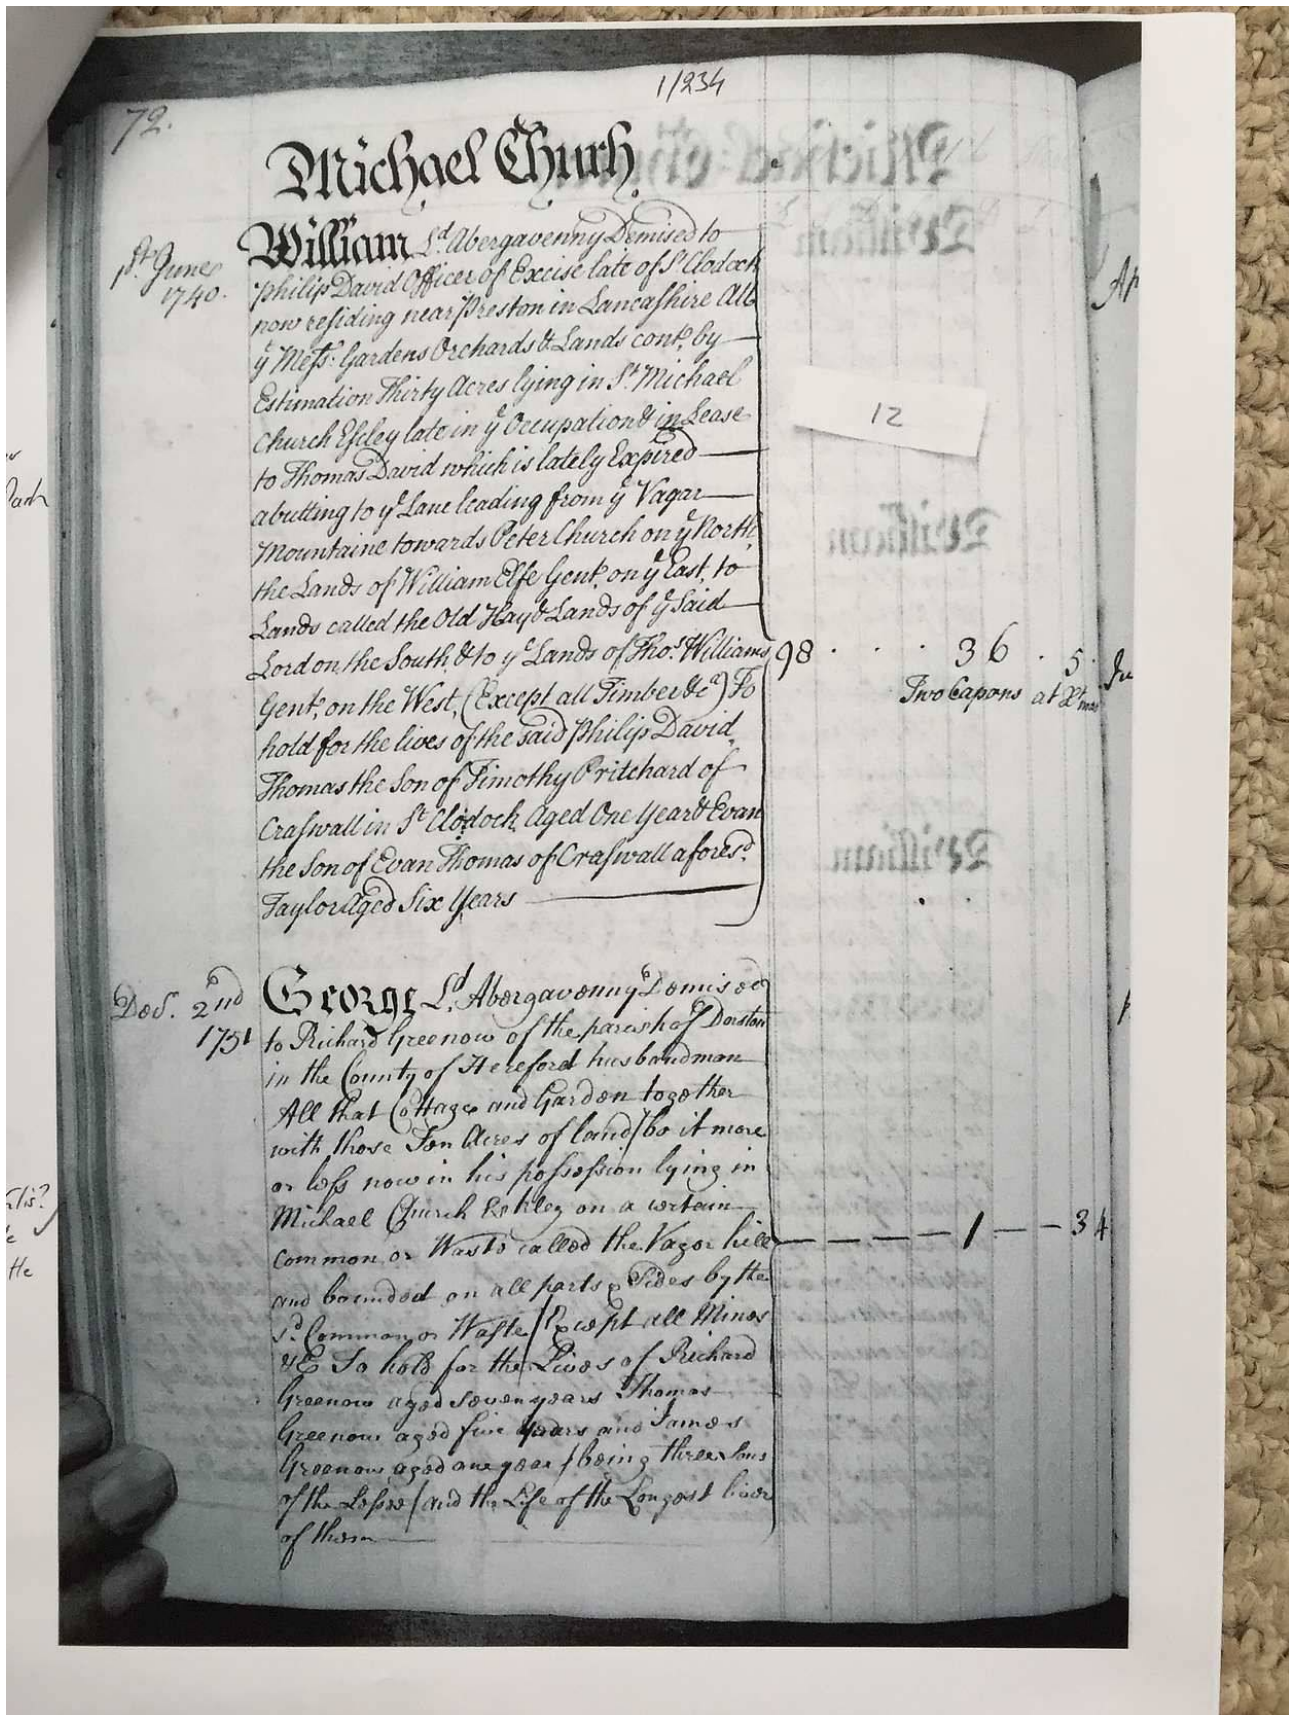 1/234
72.
Michael Churh
1st June
1740.
William Ld Abergavenny Demised to
Philip David Officer of Excise late of St Clodock
now residing near Preston in Lancashire All
ye Mess: Gardens Orchards & Lands cont. by
Estimation Thirty Acres lying in St Michael
Church Eskley late in ye Occupation & in Lease
to Thomas David which is lately Expired
abutting to ye Lane leading from ye Vagar
Mountaine towards Peter Church on ye North
the Lands of William Elfe Gent. on ye East, to
Lands called the Old Hay & Lands of ye Said
Lord on the South & to ye Lands of Thos. Williams
98 . . . 36 . 5.
Gent, on the West, (Except all Timber &ca) To
Two Capons at Xtmas
hold for the lives of the said Philip David,
Thomas the Son of Timothy Pritchard of
Craswall in St Clodoch, Aged One Year & Evan
the Son of Evan Thomas of Craswall aforesd.
Taylor Aged Six Years
12
Decr. 2nd
1751
George Ld. Abergavenny Demised
to Richard Greenow of the parish of Dorston
in the County of Hereford husbandman
All that Cottage and Garden together
with those Ten Acres of land / be it more
or less now in his possession lying in
Michael Church Eskley on a certain
common or Waste called the Vagor hill
1 34
and bounded on all parts & Sides by the
sd. Common or Waste / Except all Mines
&c To hold for the Lives of Richard
Greenow aged seven years Thomas
Greenow aged five years and James
Greenow aged one year / being three Sons
of the Lessee / and the Life of the Longest liver
of them